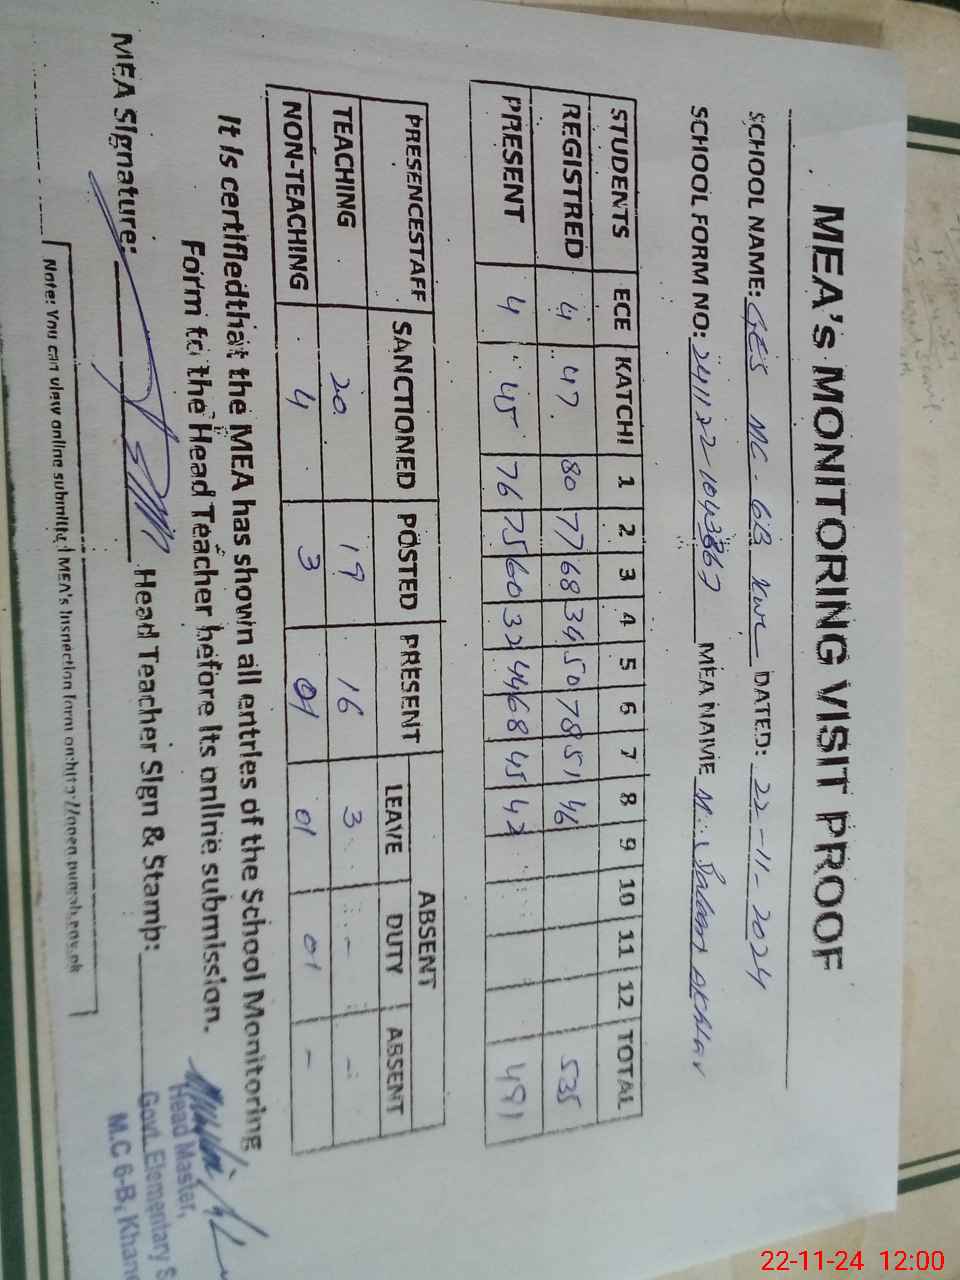 MEA's MONITORING VISIT PROOF
SCHOOL NAME: GES MC-6B KWL DATED: 22-11-2024
SCHOOL FORM NO: 241122-1043867 MEA NAME M. Akhtar
STUDENTS ECE KATCHI 1 2 3 4 5 6 7 8 9 10 11 12 TOTAL
REGISTRED 4 47 80 77 68 34 50 78 51 46 535
PRESENT 4 45 76 75 60 32 44 68 45 42 491
PRESENCESTAFF SANCTIONED POSTED PRESENT ABSENT
LEAVE DUTY ABSENT
TEACHING 20 19 16 3 - -
NON-TEACHING 4 3 01 01 01 -
It is certifiedthat the MEA has shown all entries of the School Monitoring
Form to the Head Teacher before its online submission.
MEA Signature: Head Teacher Sign & Stamp:
Head Master,
Govt. Elementary S
M.C 6-B, Khane
Note: You can view online submitted MEA's Inspection form on http://open.punjab.gov.pk
22-11-24 12:00